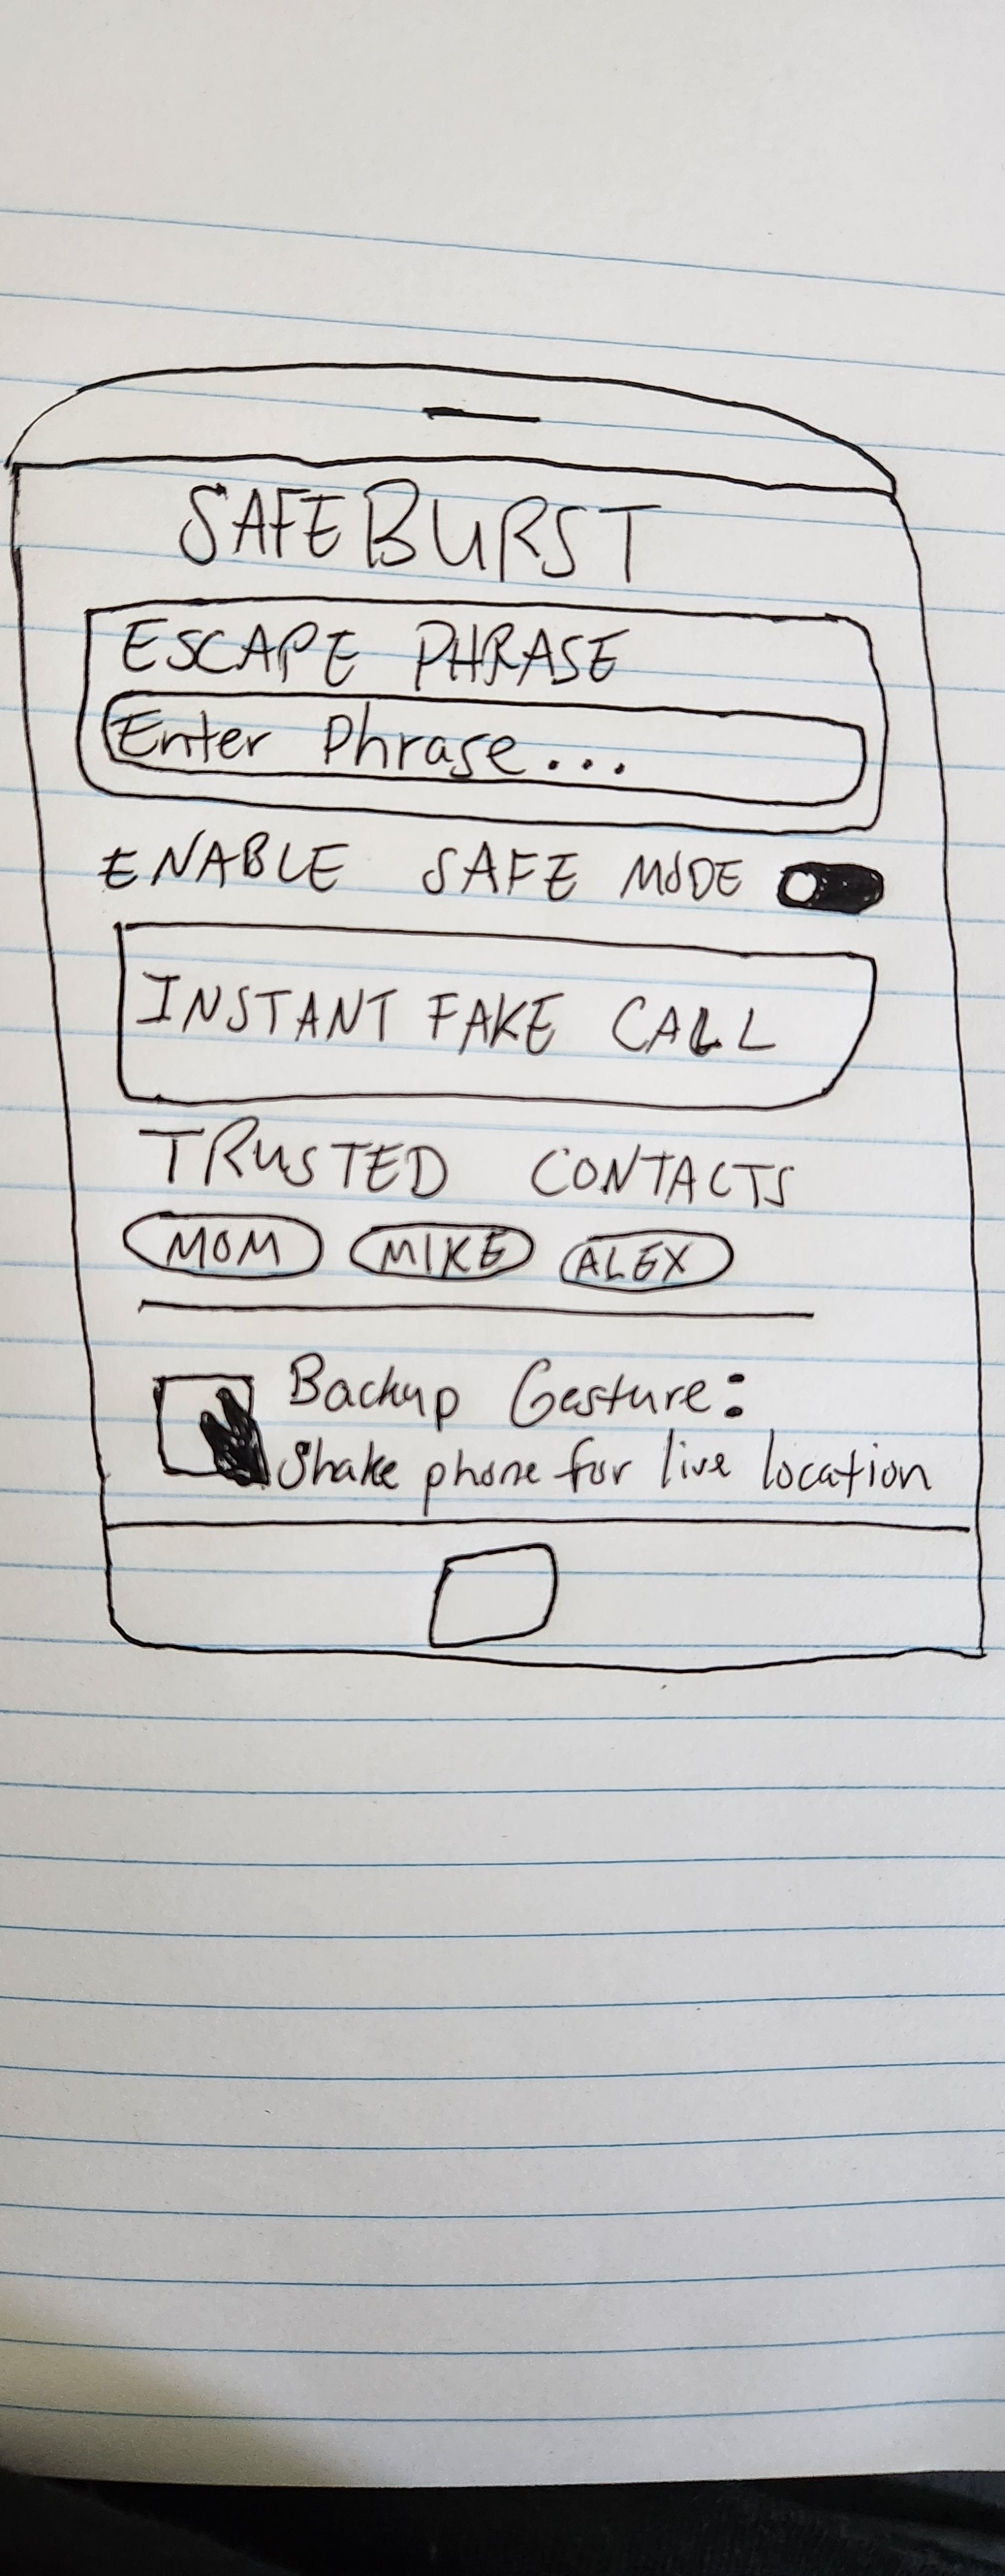 SAFEBURST
ESCAPE PHRASE
Enter Phrase...
ENABLE SAFE MODE
INSTANT FAKE CALL
TRUSTED CONTACTS
MOM MIKE ALEX
Backup Gesture:
Shake phone for live location